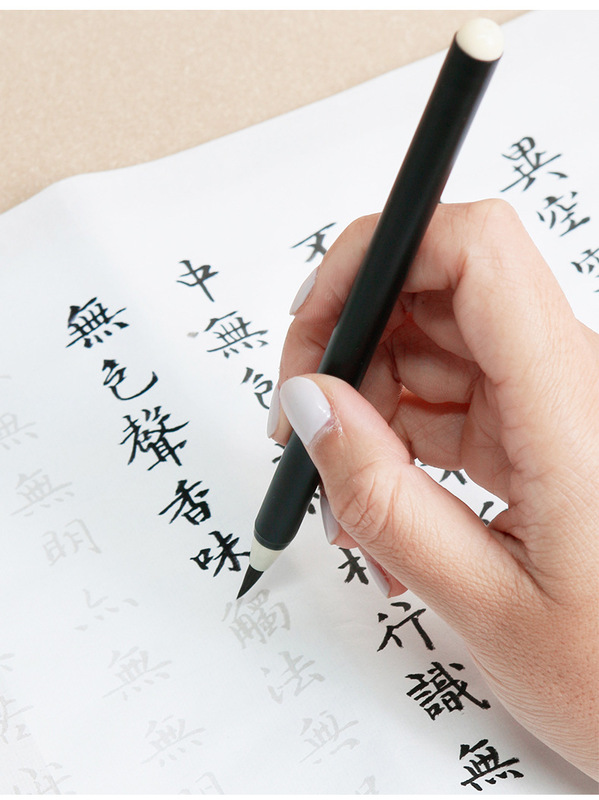 異空空
不
中無色行識無
無色聲香味觸法無
無無明亦無無明